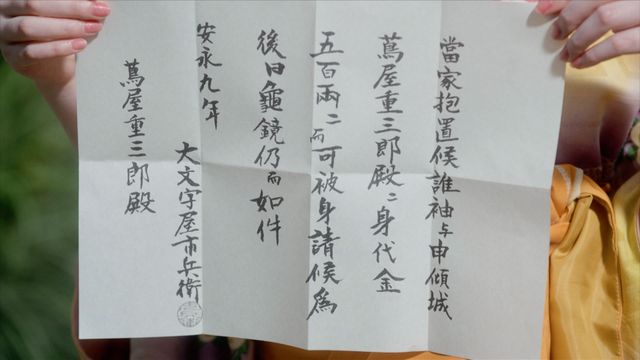 當家抱置候誰袖与申傾城
蔦屋重三郎殿ニ身代金
五百兩ニ而可被身請候為
後日龜鏡仍而如件
安永九年
大文字屋市兵衛
蔦屋重三郎殿